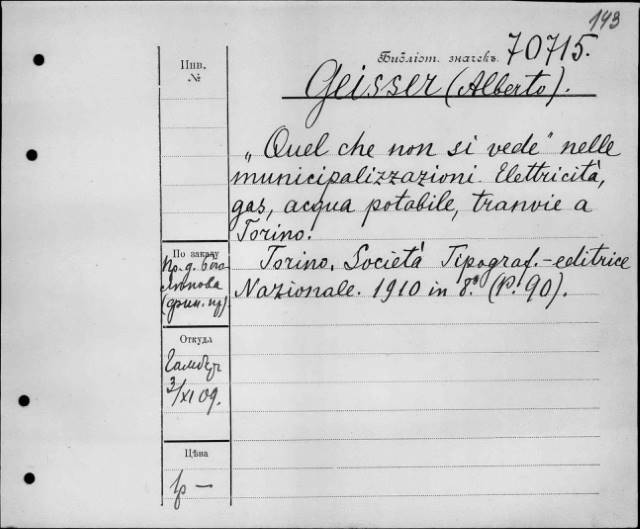 143
Библіот. значекъ 70715.
Инв.
№
Geisser (Alberto).
„Quel che non si vede" nelle
municipalizzazioni. Elettricitá,
gas, acqua potabile, tranvie a
Torino.
Torino. Societá Tipograf.-editrice
Nazionale. 1910 in 8° (P. 90).
По заказу
(фин. пр)
Откуда
3/XI 09.
Цѣна